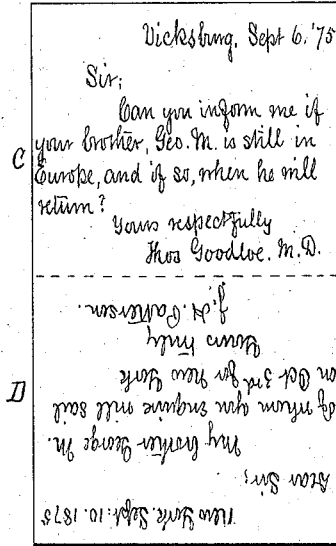 Vicksburg, Sept 6. '75
Sir;
Can you inform me if
your brother, Geo. M. is still in
Europe, and if so, when he will
return?
Yours respectfully
Thos Goodloe. M.D.
C
New York. Sept. 10. 1875
Dear Sir;
My brother George M.
of whom you enquire will sail
on Oct 3rd for New York
Yours truly
J. H. Patterson.
D